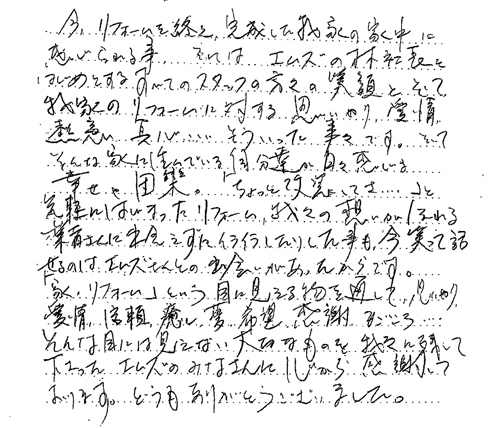 今、リフォームを終え、完成した我家の家中に
感じられる事、それは エムズの林社長を
はじめとするすべてのスタッフの方々の笑顔と、そして
我家のリフォームに対する 思いやり、愛情、
熱意、真心……そういった 事々です。そして
そんな家に住んでいる自分達が日々感じている
幸せや団欒。「ちょっと改装してさ…」と
気軽にはじまったリフォーム、我々の想いが伝わる
業者さんに出会えずにイライラしたりした事も、今笑って話
せるのは エムズさんとの出会いがあったからです。
「家・リフォーム」という目に見える物を通して、思いやり
愛情、信頼、癒し、夢、希望、感謝、まごころ…
そんな目には見えない大切なものを我々に残して
下さった エムズのみなさんに心から感謝して
おります。どうもありがとうございました。